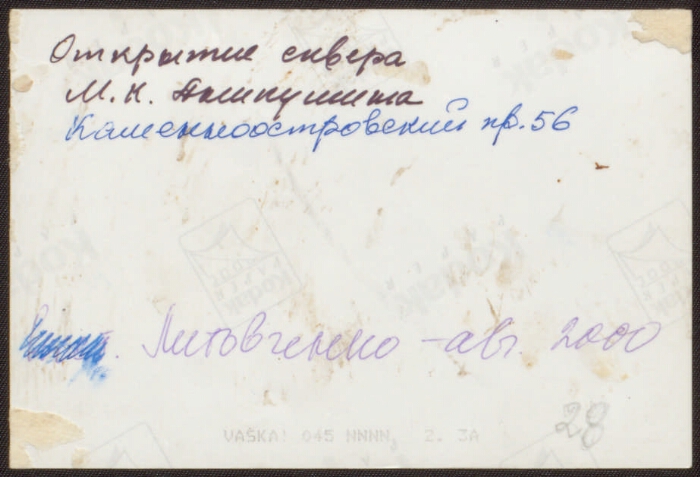 Открытие сквера
М.К. Аникушина
Каменноостровский пр. 56
Литовченко - авг 2000
28
VAŠKA! 045 NNNN, 2. 3A
Kodak
Kodak
Kodak